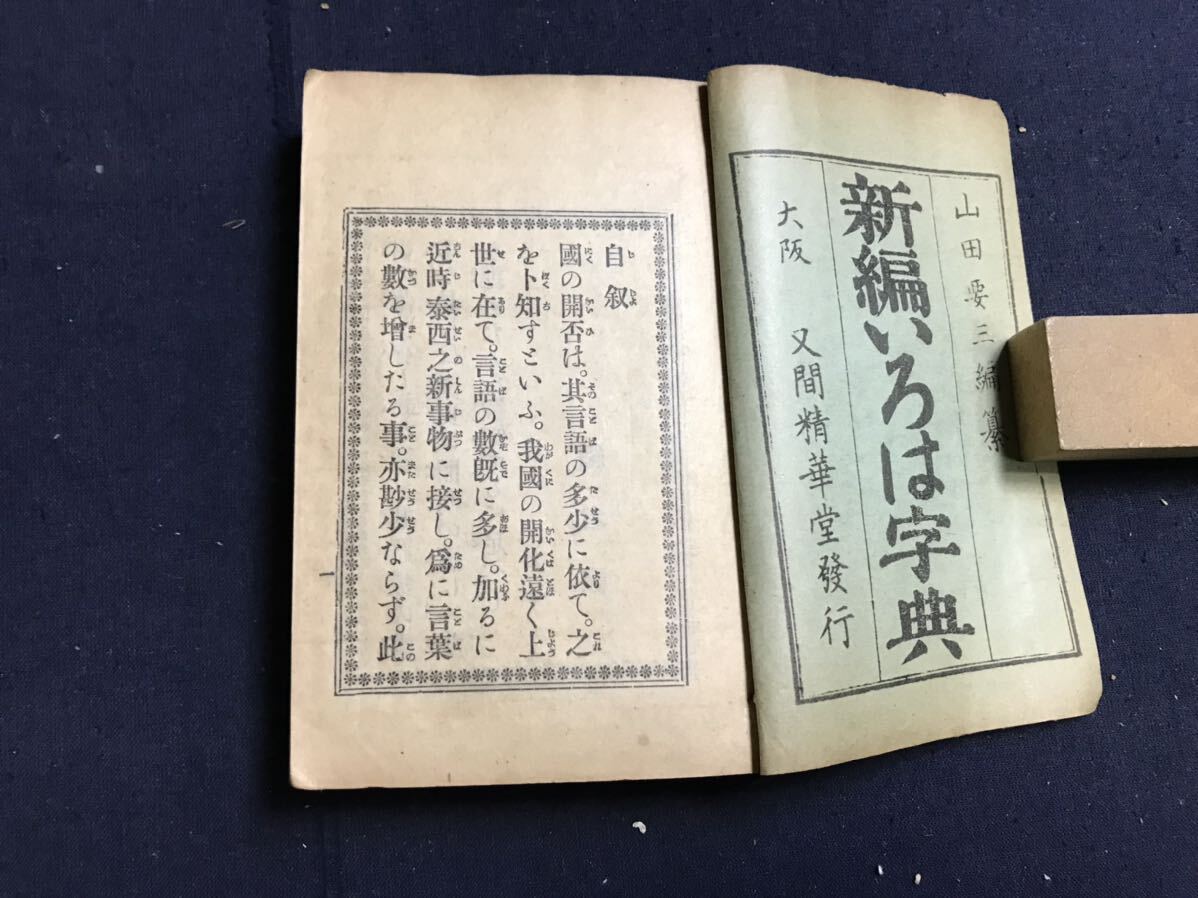 山田要三編纂
新編いろは字典
大阪 又間精華堂發行
自叙
國の開否は。其言語の多少に依て。之
を卜知すといふ。我國の開化遠く上
世に在て。言語の數既に多し。加るに
近時泰西之新事物に接し。爲に言葉
の數を增したる事。亦尠少ならず。此
一